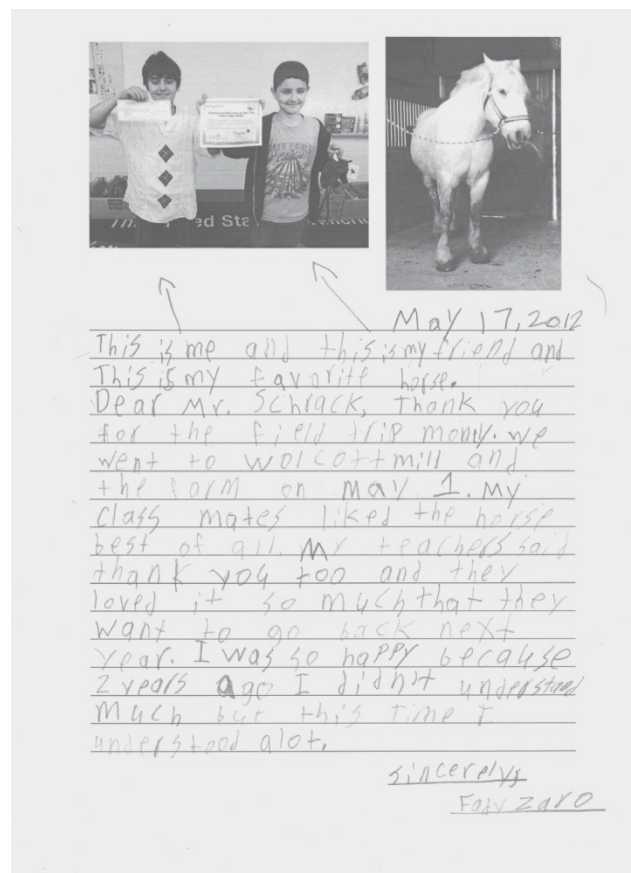 ed Sta
May 17, 2012
This is me and this is my friend and
This is my favorite horse.
Dear Mr. Schrack, Thank you
for the field trip mony. we
went to wolcottmill and
the farm on may 1. My
class mates liked the horse
best of all. My teachers said
thank you too and they
loved it so much that they
want to go back next
year. I was so happy because
2 years ago I didn't understand
much but this time I
understood alot.
sincerely,
Fady Zaro